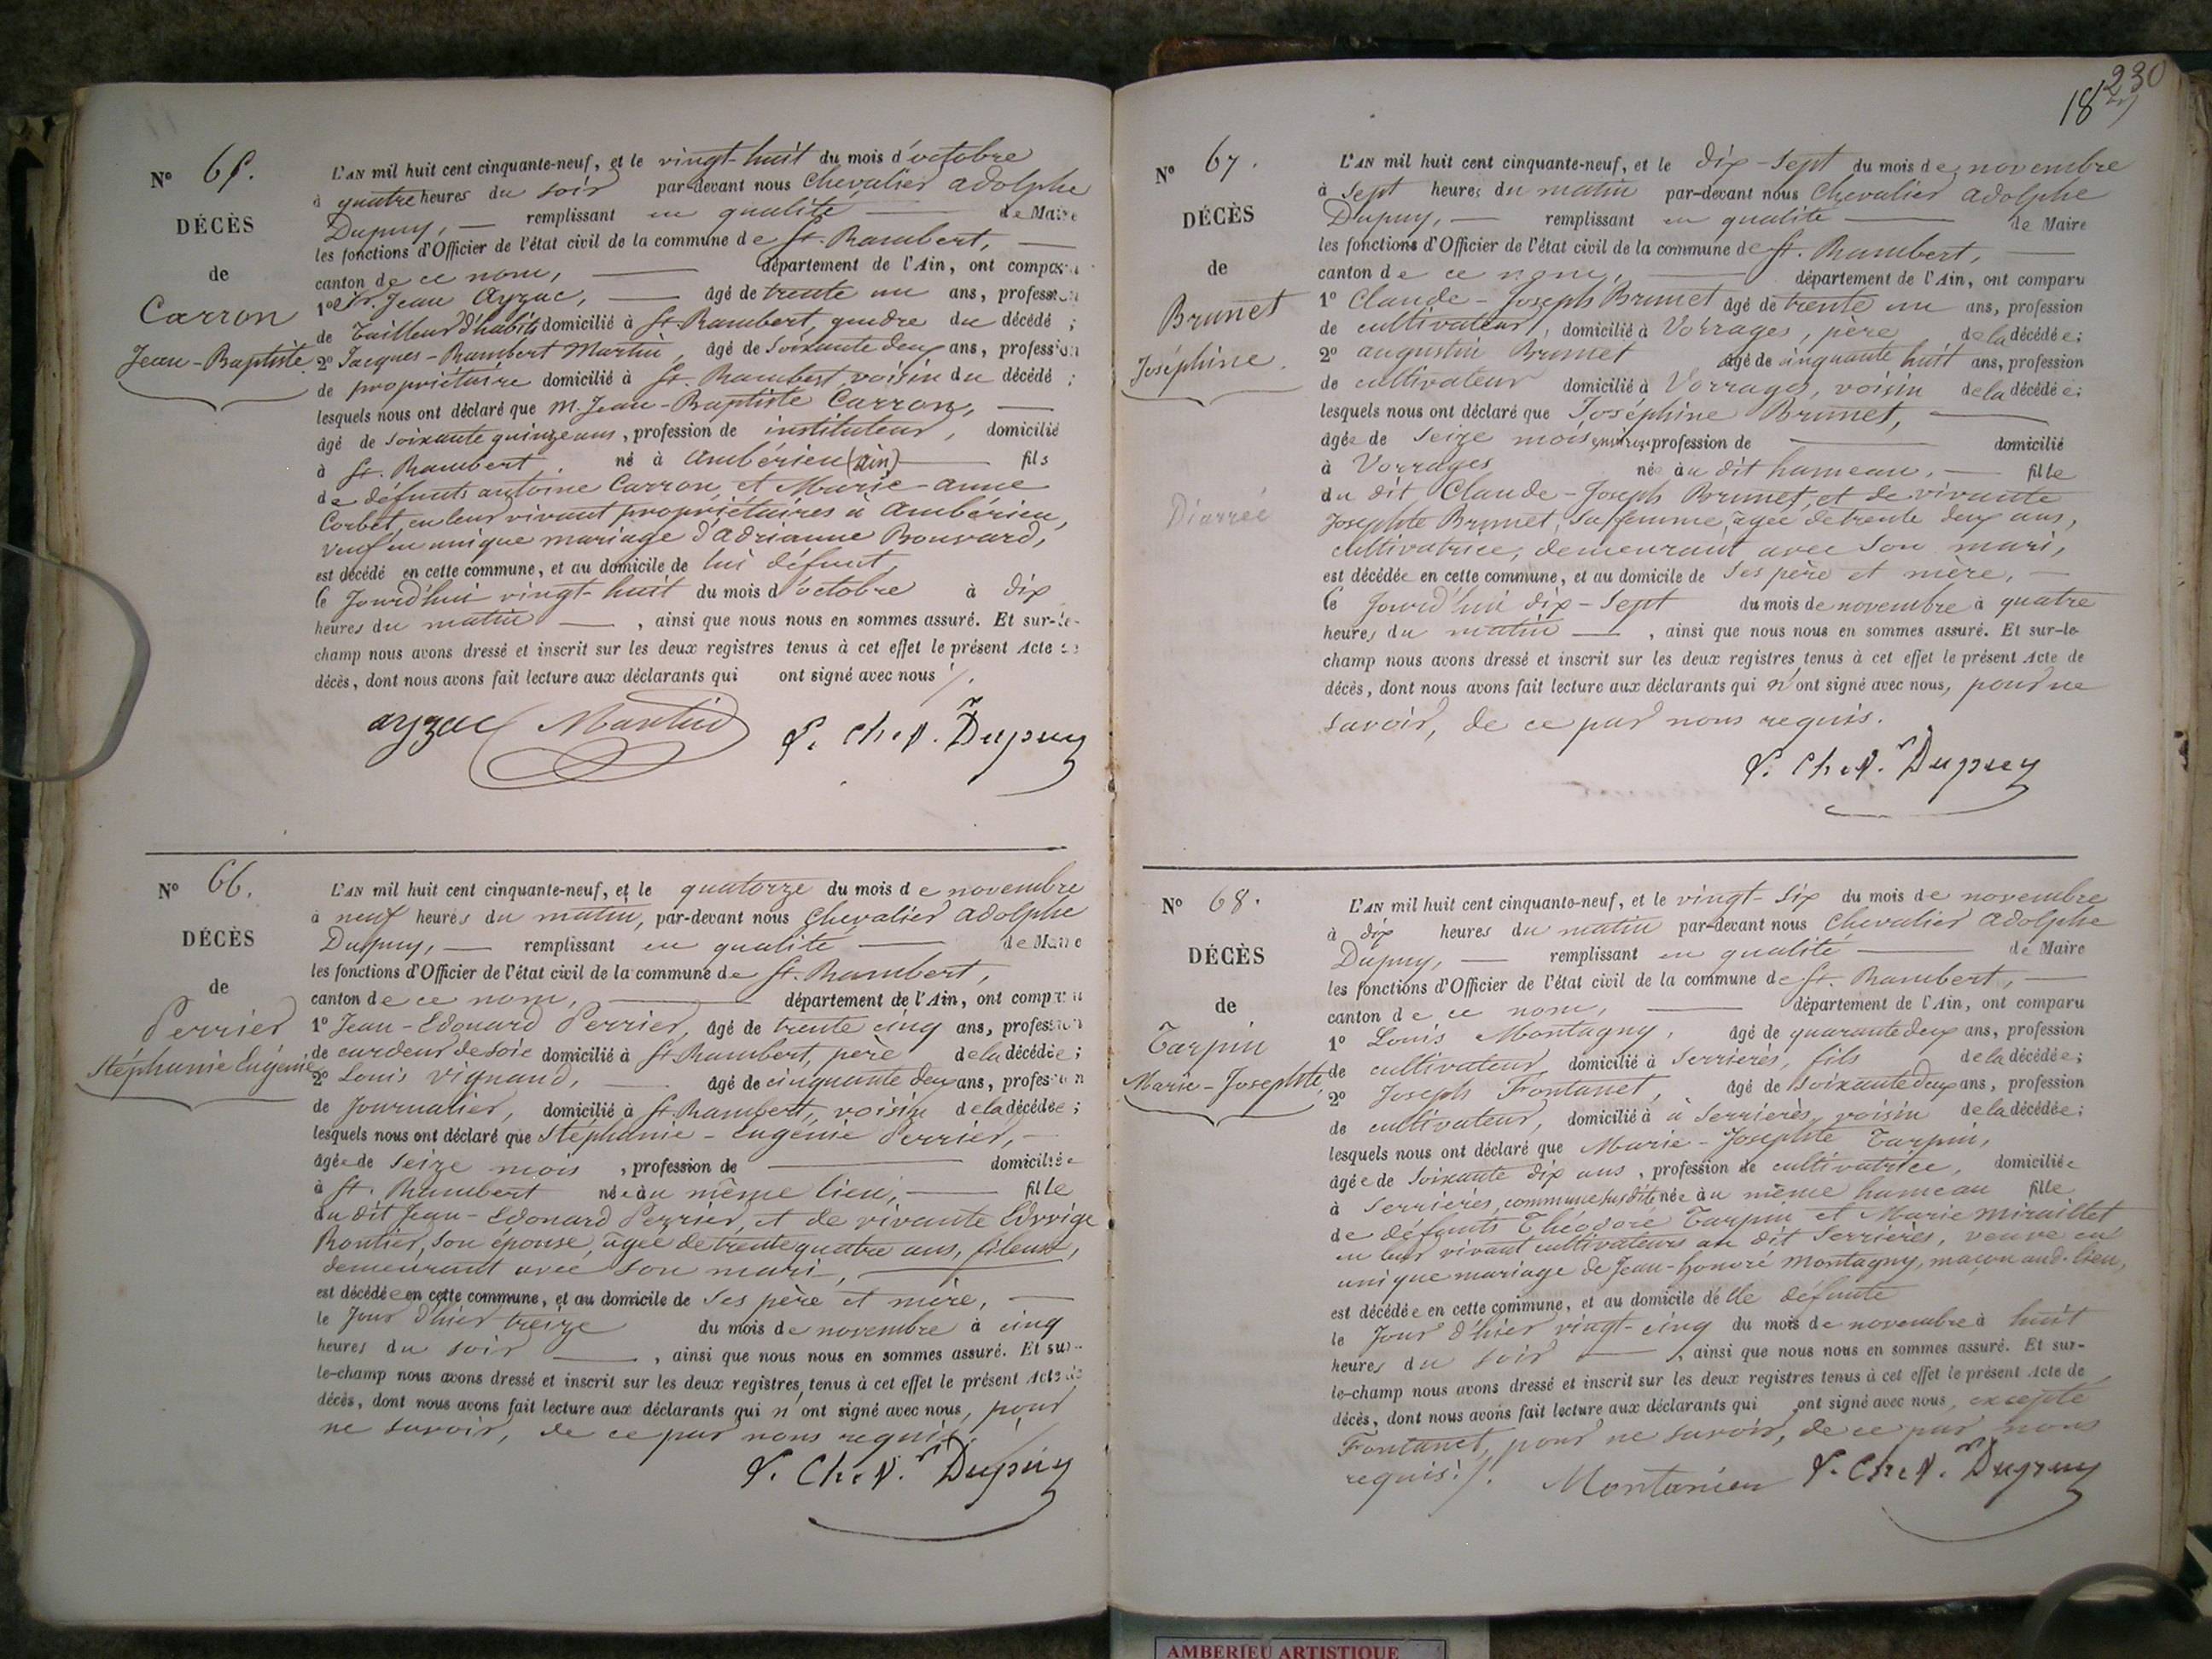 Nº 65.
DÉCÈS
de
Carron
Jean-Baptiste.
L'AN mil huit cent cinquante-neuf, et le vingt-huit du mois d'octobre
à quatre heures du soir par-devant nous Chevalier Adolphe
Dupuy, — remplissant en qualité — de Maire
les fonctions d'Officier de l'état civil de la commune de St. Rambert, —
canton de ce nom, — département de l'Ain, ont comparu
1º Sr. Jean Ayzac, — âgé de trente un ans, profession
de Tailleur d'habits domicilié à St. Rambert, gendre du décédé ;
2º Jacques-Rambert Martin, âgé de soixante deux ans, profession
de propriétaire domicilié à St. Rambert voisin du décédé ;
lesquels nous ont déclaré que M. Jean-Baptiste Carron, —
âgé de soixante quinze ans, profession de instituteur, domicilié
à St. Rambert, né à Ambérieu (Ain) — fils
de défunts antoine Carron, et Marie-anne
Corbet, en leur vivant propriétaires à Ambérieu,
veuf en unique mariage d'Adrianne Bouvard,
est décédé en cette commune, et au domicile de lui défunt,
le Jourd'hui vingt-huit du mois d'octobre à dix
heures du matin — , ainsi que nous nous en sommes assuré. Et sur-le-
champ nous avons dressé et inscrit sur les deux registres tenus à cet effet le présent Acte de
décès, dont nous avons fait lecture aux déclarants qui ont signé avec nous /.
ayzac Martin Chev.r Dupuy
Nº 66.
DÉCÈS
de
Perrier
Stéphanie Eugénie
L'AN mil huit cent cinquante-neuf, et le quatorze du mois de novembre
à neuf heures du matin, par-devant nous Chevalier Adolphe
Dupuy, — remplissant en qualité — de Maire
les fonctions d'Officier de l'état civil de la commune de St. Rambert,
canton de ce nom, — département de l'Ain, ont comparu
1º Jean-Edouard Perrier, âgé de trente cinq ans, profession
de cardeur de soie domicilié à St. Rambert, père de la décédée ;
2º Louis Vignand, — âgé de cinquante deux ans, profession
de Journalier, domicilié à St. Rambert, voisin de la décédée ;
lesquels nous ont déclaré que Stéphanie-Eugénie Perrier, —
âgée de seize mois , profession de — domiciliée
à St. Rambert née au même lieu, — fille
du dit Jean-Edouard Perrier, et de vivante Edvvige
Rontier, son épouse, âgée de trente quatre ans, fileuse,
demeurant avec son mari, —
est décédée en cette commune, et au domicile de ses père et mère, —
le Jour d'hier treize du mois de novembre à cinq
heures du soir — , ainsi que nous nous en sommes assuré. Et sur-
le-champ nous avons dressé et inscrit sur les deux registres tenus à cet effet le présent Acte de
décès, dont nous avons fait lecture aux déclarants qui n'ont signé avec nous, pour
ne savoir, de ce par nous requis /.
Chev.r Dupuy
230
18
Nº 67.
DÉCÈS
de
Brunet
Joséphine.
Diarrée
L'AN mil huit cent cinquante-neuf, et le dix-sept du mois de novembre
à sept heures du matin par-devant nous Chevalier Adolphe
Dupuy, — remplissant en qualité — de Maire
les fonctions d'Officier de l'état civil de la commune de St. Rambert, —
canton de ce nom, — département de l'Ain, ont comparu
1º Claude-Joseph Brunet âgé de trente un ans, profession
de cultivateur, domicilié à Vorrages, père de la décédée ;
2º augustin Brunet âgé de cinquante huit ans, profession
de cultivateur domicilié à Vorrages, voisin de la décédée ;
lesquels nous ont déclaré que Joséphine Brunet, —
âgée de seize mois environ, profession de — domicilié
à Vorrages née au dit hameau, — fille
du dit Claude-Joseph Brunet, et de vivante
Josephte Brunet, sa femme, âgée de trente deux ans,
cultivatrice, demeurant avec son mari,
est décédée en cette commune, et au domicile de ses père et mère, —
le Jourd'hui dix-sept du mois de novembre à quatre
heures du matin — , ainsi que nous nous en sommes assuré. Et sur-le-
champ nous avons dressé et inscrit sur les deux registres tenus à cet effet le présent Acte de
décès, dont nous avons fait lecture aux déclarants qui n'ont signé avec nous, pour ne
savoir, de ce par nous requis.
Chev.r Dupuy
Nº 68.
DÉCÈS
de
Tarpin
Marie-Josephte,
L'AN mil huit cent cinquante-neuf, et le vingt-six du mois de novembre
à dix heures du matin par-devant nous Chevalier Adolphe
Dupuy, — remplissant en qualité — de Maire
les fonctions d'Officier de l'état civil de la commune de St. Rambert, —
canton de ce nom, — département de l'Ain, ont comparu
1º Louis Montagny, âgé de quarante deux ans, profession
de cultivateur, domicilié à Serrières, fils de la décédée ;
2º Joseph Fontanet, âgé de soixante deux ans, profession
de cultivateur, domicilié à à Serrières, voisin de la décédée ;
lesquels nous ont déclaré que Marie-Josephte Tarpin,
âgée de soixante dix ans, profession de cultivatrice, domiciliée
à Serrières, commune susdite née au même hameau fille
de défunts Théodore Tarpin et Marie Miraillet
en leur vivant cultivateurs au dit Serrières, veuve en
unique mariage de Jean-honoré Montagny, maçon aud. lieu,
est décédée en cette commune, et au domicile d'elle défunte
le Jour d'hier vingt-cinq du mois de novembre à huit
heures du soir — , ainsi que nous nous en sommes assuré. Et sur-
le-champ nous avons dressé et inscrit sur les deux registres tenus à cet effet le présent Acte de
décès, dont nous avons fait lecture aux déclarants qui ont signé avec nous, excepté
Fontanet, pour ne savoir, de ce par nous
requis /. Montanieu Chev.r Dupuy
AMBERIEU ARTISTIQUE